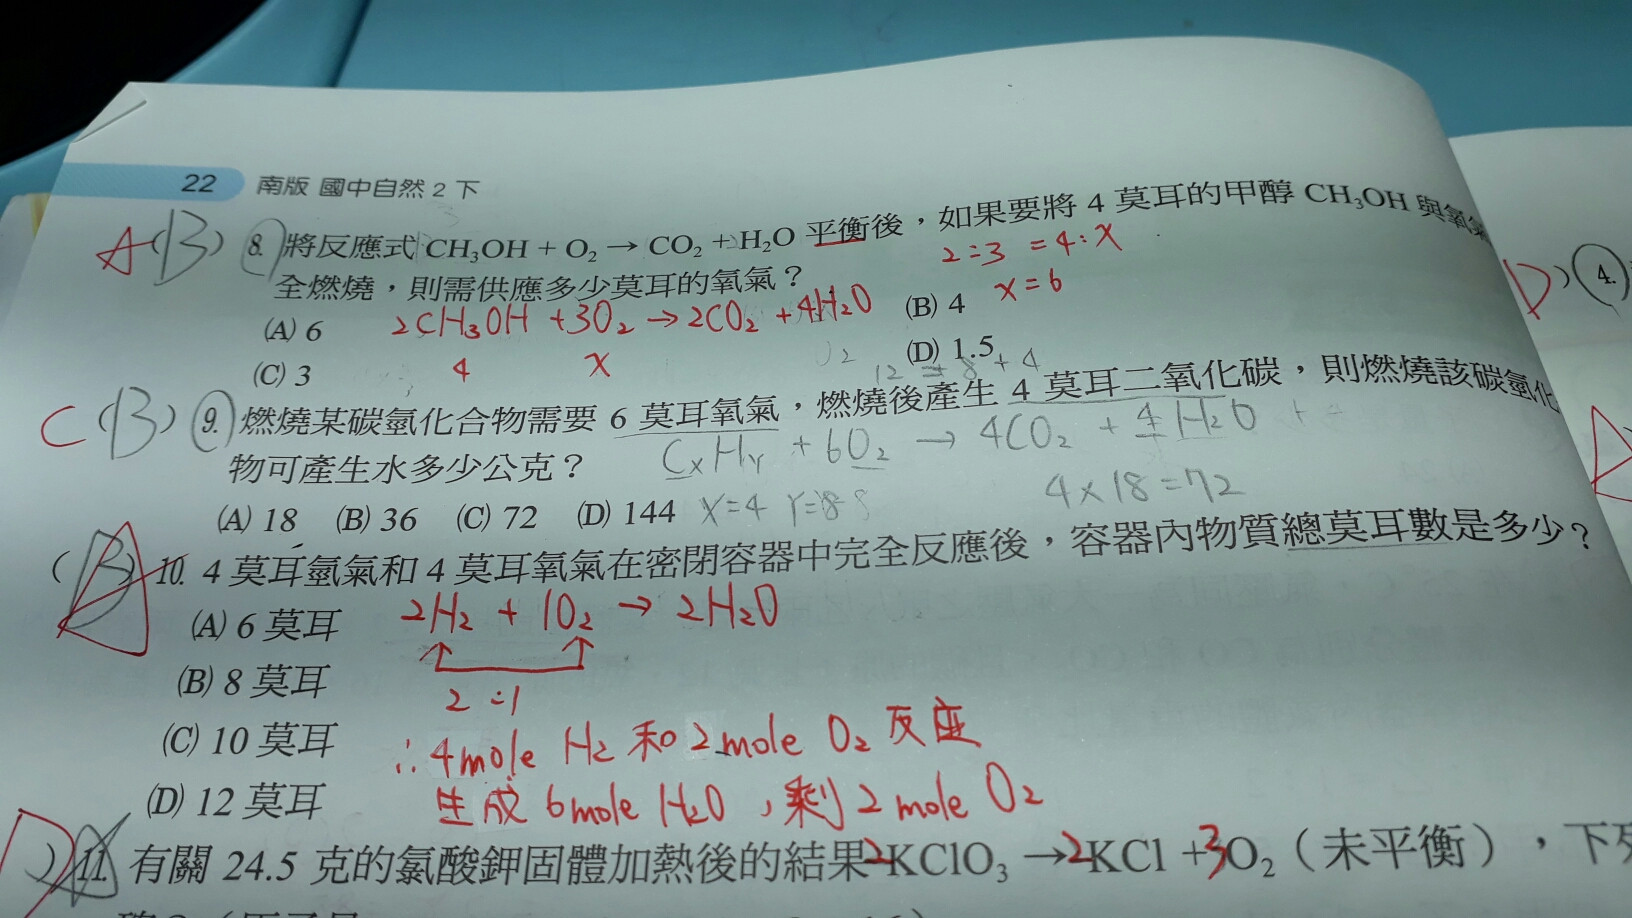 22 南版 國中自然 2 下
A (B) 8. 將反應式 CH₃OH + O₂ → CO₂ + H₂O 平衡後，如果要將 4 莫耳的甲醇 CH₃OH 與氧氣
2:3 = 4:x
全燃燒，則需供應多少莫耳的氧氣？
x = 6
(A) 6
2CH₃OH + 3O₂ → 2CO₂ + 4H₂O
(B) 4
(C) 3
4 x
(D) 1.5
12 = 8 + 4
C (B) 9. 燃燒某碳氫化合物需要 6 莫耳氧氣，燃燒後產生 4 莫耳二氧化碳，則燃燒該碳氫化
CxHy + 6O₂ → 4CO₂ + 4H₂O
物可產生水多少公克？
4×18=72
(A) 18 (B) 36 (C) 72 (D) 144
X=4 Y=8 8
(B) 10. 4 莫耳氫氣和 4 莫耳氧氣在密閉容器中完全反應後，容器內物質總莫耳數是多少？
(A) 6 莫耳
2H₂ + 1O₂ → 2H₂O
(B) 8 莫耳
2:1
(C) 10 莫耳
∴4mole H₂ 和 2mole O₂ 反应
(D) 12 莫耳
生成 6mole H₂O，剩 2 mole O₂
) 11. 有關 24.5 克的氯酸鉀固體加熱後的結果 2KClO₃ → 2KCl + 3O₂（未平衡），下列
D ) 4.